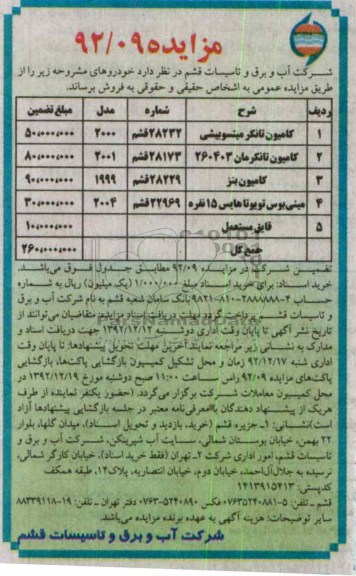 مزایده ۹۲/۰۹
شرکت آب و برق و تاسیسات قشم در نظر دارد خودروهای مشروحه زیر را از
طریق مزایده عمومی به اشخاص حقیقی و حقوقی به فروش برساند.
ردیف شرح شماره مدل مبلغ تضمین
۱ کامیون تانکر میتسوبیشی ۲۸۲۳۲قشم ۲۰۰۰ ۵۰,۰۰۰,۰۰۰
۲ کامیون تانکرمان ۲۶۰۴۰۳ ۲۸۱۷۳قشم ۲۰۰۱ ۸۰,۰۰۰,۰۰۰
۳ کامیون بنز ۲۸۲۲۹قشم ۱۹۹۹ ۹۰,۰۰۰,۰۰۰
۴ مینی بوس تویوتا هایس ۱۵ نفره ۲۲۹۶۹قشم ۲۰۰۴ ۳۰,۰۰۰,۰۰۰
۵ قایق مستعمل ۱۰,۰۰۰,۰۰۰
جمع کل ۲۶۰,۰۰۰,۰۰۰
تضمین شرکت در مزایده ۹۲/۰۹ مطابق جدول فوق می‌باشد.
خرید اسناد: برای خرید اسناد مبلغ ۱/۰۰۰/۰۰۰ (یک میلیون) ریال به شماره
حساب ۴-۲۸۸۸۸۸-۸۱۰-۹۸۲۱ بانک سامان شعبه قشم به نام شرکت آب و برق
و تاسیسات قشم پرداخت گردد مهلت دریافت اسناد مزایده: متقاضیان می‌توانند از
تاریخ نشر آگهی تا پایان وقت اداری دوشنبه ۱۳۹۲/۱۲/۱۲ جهت دریافت اسناد و
مدارک به نشانی زیر مراجعه نمایند. آخرین مهلت تحویل پیشنهادها: تا پایان وقت
اداری شنبه ۹۲/۱۲/۱۷ زمان و محل تشکیل کمیسیون بازگشایی پاکت‌ها، بازگشایی
پاکت‌های مزایده ۹۲/۰۹ راس ساعت ۱۱:۰۰ صبح دوشنبه مورخ ۱۳۹۲/۱۲/۱۹ در
محل کمیسیون معاملات شرکت برگزار می‌گردد. (حضور یکنفر نماینده از طرف
هریک از پیشنهاد دهندگان بامعرفی‌نامه معتبر در جلسه بازگشایی پیشنهادها آزاد
است) نشانی: ۱- جزیره قشم (خرید، بازدید و تحویل اسناد)، میدان گلها، بلوار
۲۲ بهمن، خیابان بوستان شمالی، سایت آب شیرینکن، شرکت آب و برق و
تاسیسات قشم، امور اداری شرکت ۲- تهران (فقط خرید اسناد)، خیابان کارگر شمالی،
نرسیده به جلال‌آل‌احمد، خیابان دوم، خیابان انتصاریه، پلاک ۱۴، طبقه همکف
کدپستی: ۱۴۱۳۹۱۵۴۱۳
قشم - تلفن: ۵-۰۷۶۳۵۲۴۰۸۸۱ فکس ۵۲۴۰۸۹۰-۰۷۶۳ دفتر تهران - تلفن: ۱۹-۸۸۳۳۹۱۱۸
سایر توضیحات: هزینه آگهی به عهده برنده مزایده می‌باشد.
شرکت آب و برق و تاسیسات قشم